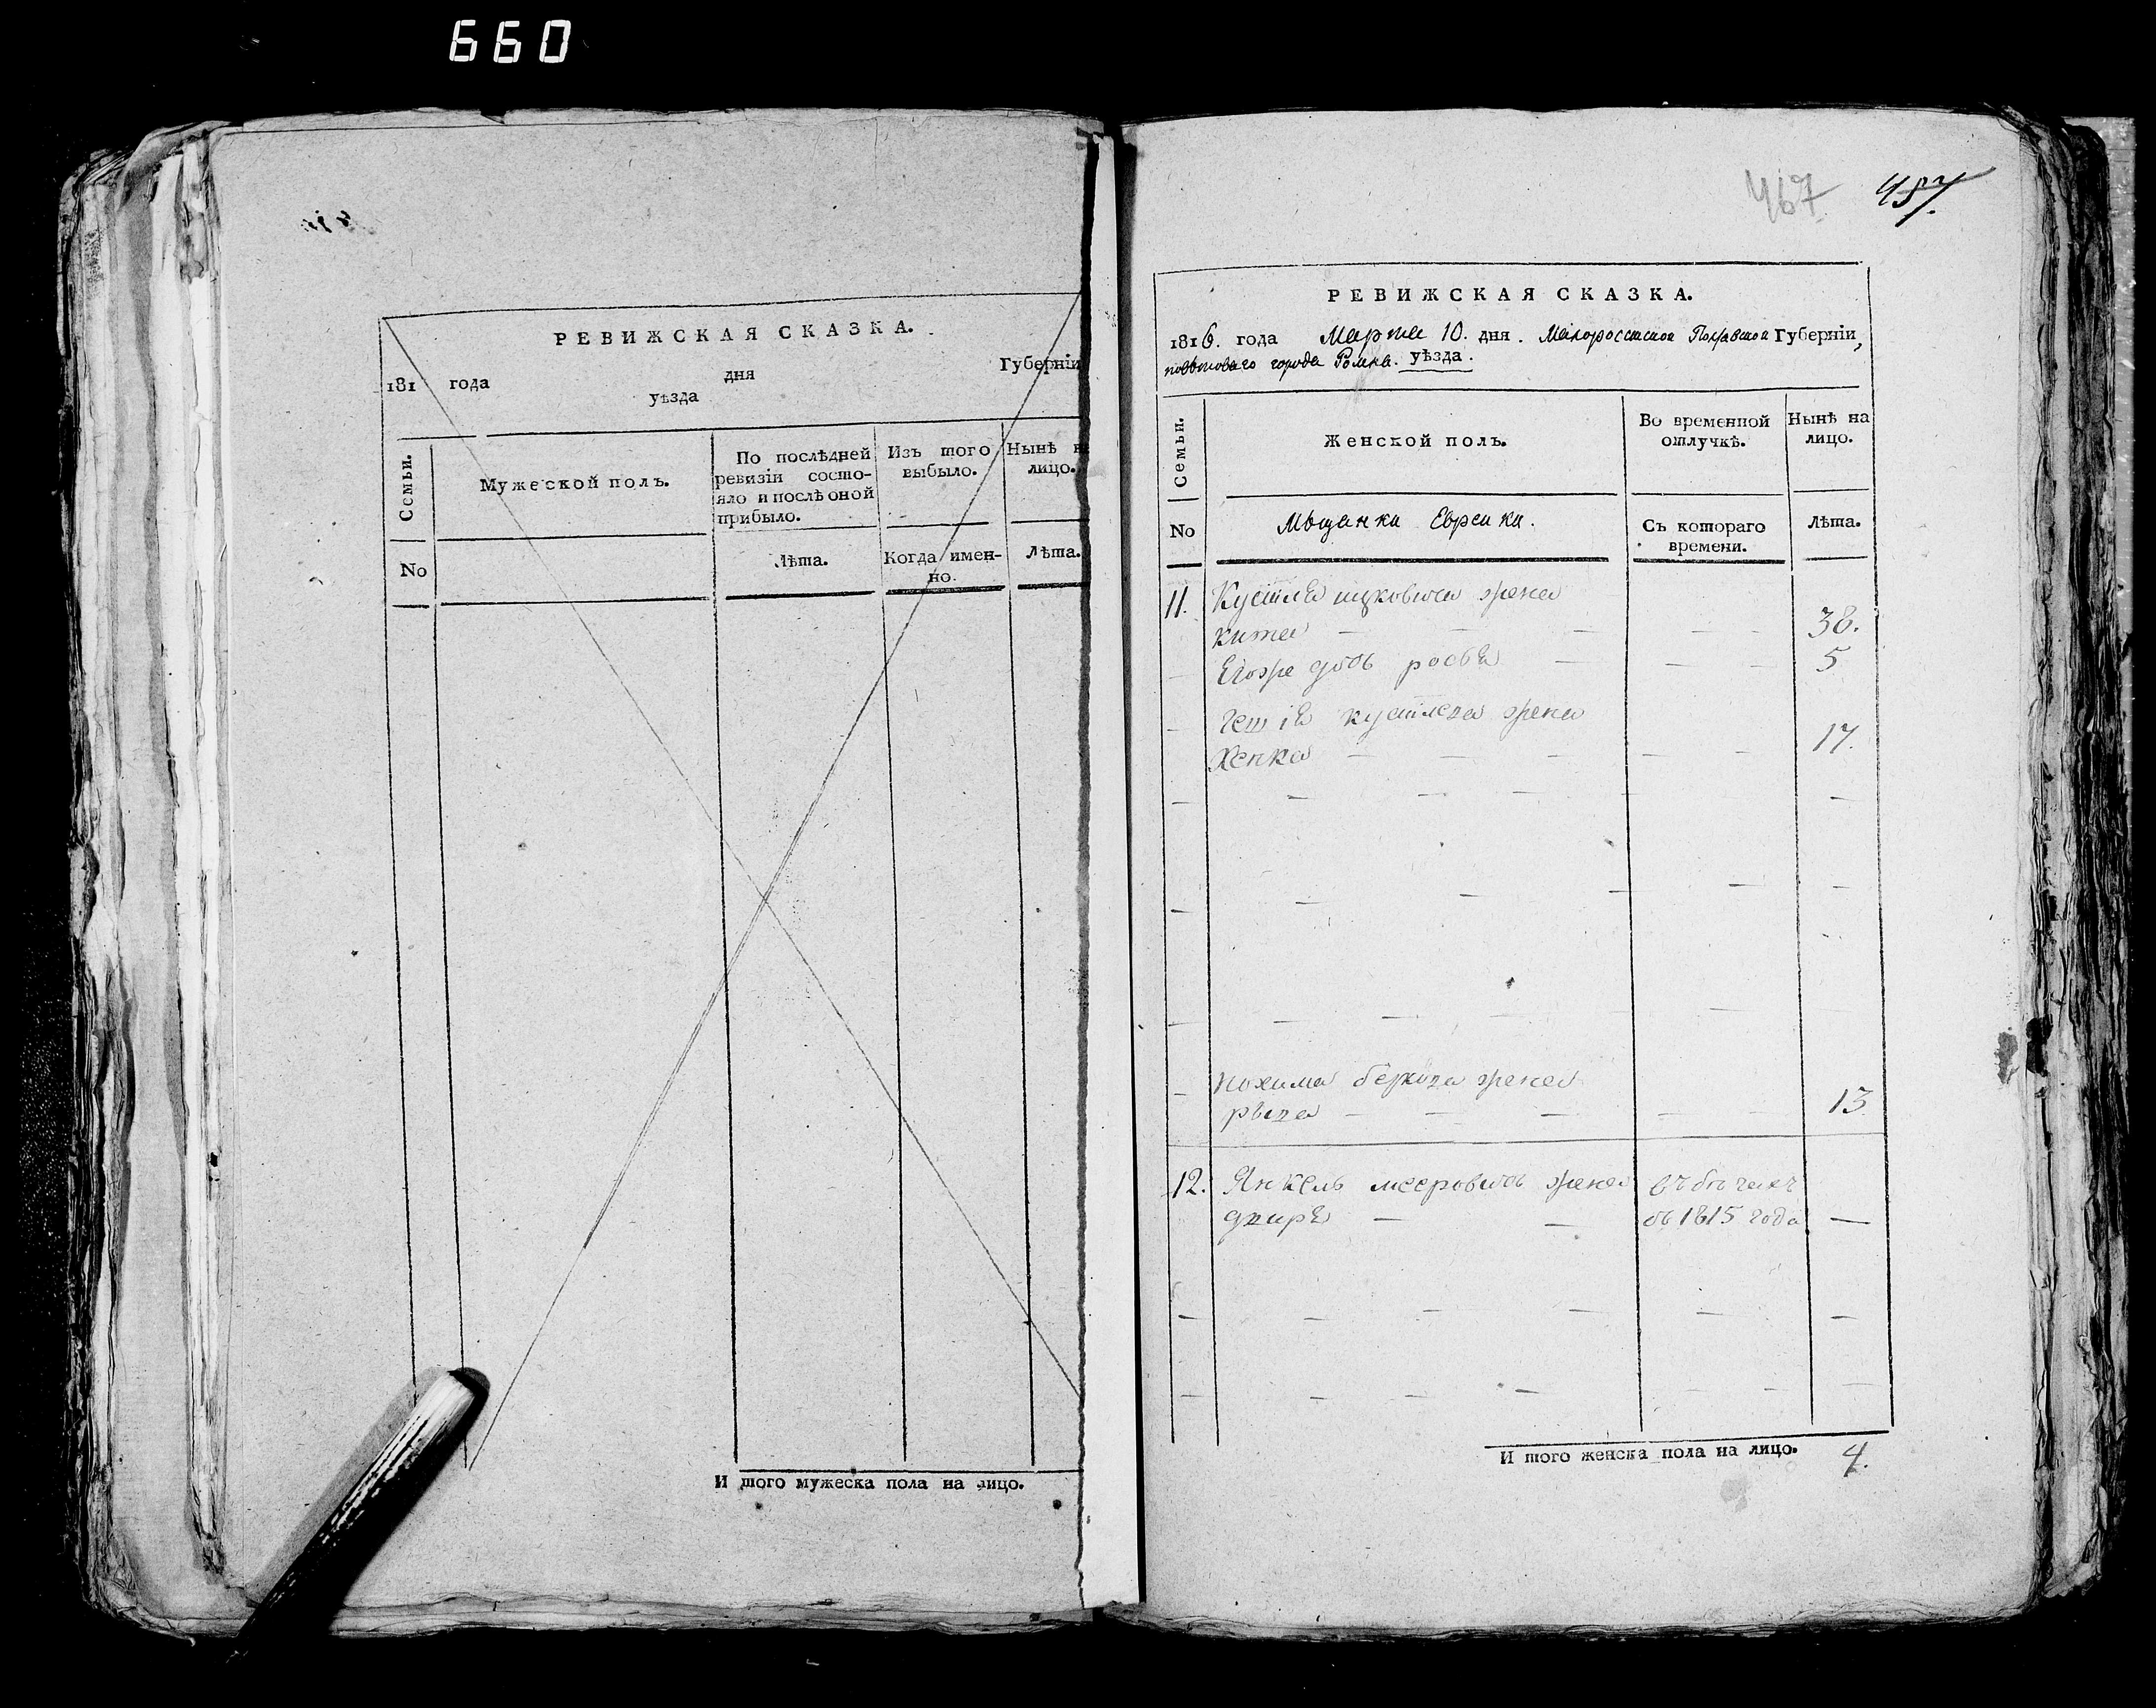 660
РЕВИЖСКАЯ СКАЗКА.
181 года дня Губерніи
уѣзда
Семьи.
Мужеской полъ.
По послѣдней ревизіи состо-
яло и послѣ оной прибыло.
Изъ того выбыло.
Нынѣ на лицо.
No
Лѣта.
Когда имен-
но.
Лѣта.
И того мужеска пола на лицо.
467 457.
РЕВИЖСКАЯ СКАЗКА.
1816. года Марта 10. дня. Малороссійской Полтавской Губерніи,
повѣтоваго города Ромна. уѣзда.
Семьи.
Женской полъ.
Во временной отлучкѣ.
Нынѣ на лицо.
No
Мѣщанки Еврейки.
Съ котораго времени.
Лѣта.
11. жена
38.
Егоже дочь 5
жена
Хенка 17.
жена
13
12. Янкель мееровича жена
съ 1815 года
И того женска пола на лицо. 4.